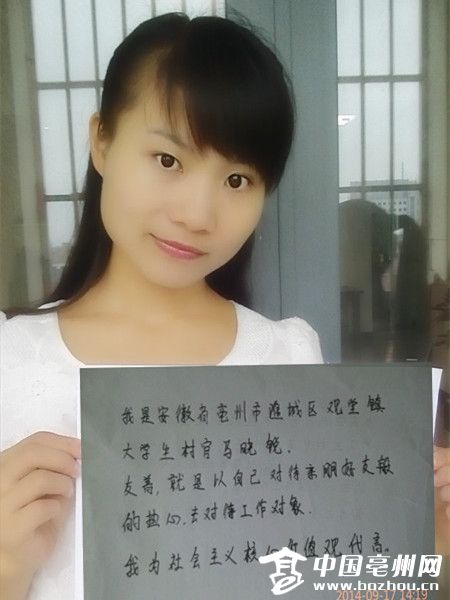 我是安徽省亳州市谯城区观堂镇
大学生村官马晓锐.
友善,就是以自己对待亲朋好友般
的热心,去对待工作对象.
我为社会主义核心价值观代言。
中国亳州网
www.bozhou.cn
2014-09-17 14:19